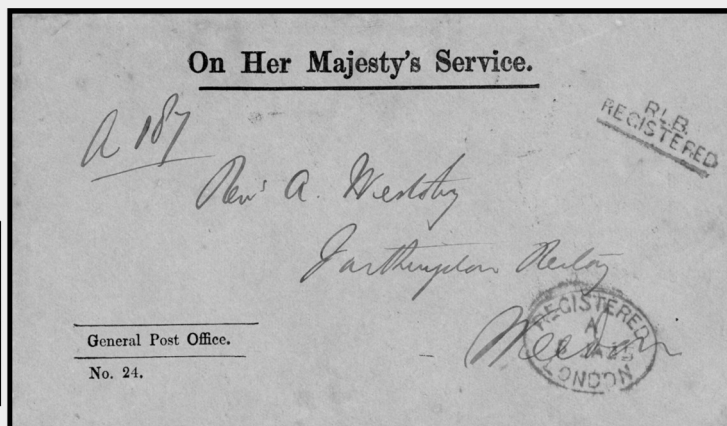 On Her Majesty's Service.
R.L.B.
REGISTERED
A 187
Revd A. Westoby
Farthingstone Rectory
Weedon
REGISTERED
A
LONDON
General Post Office.
No. 24.